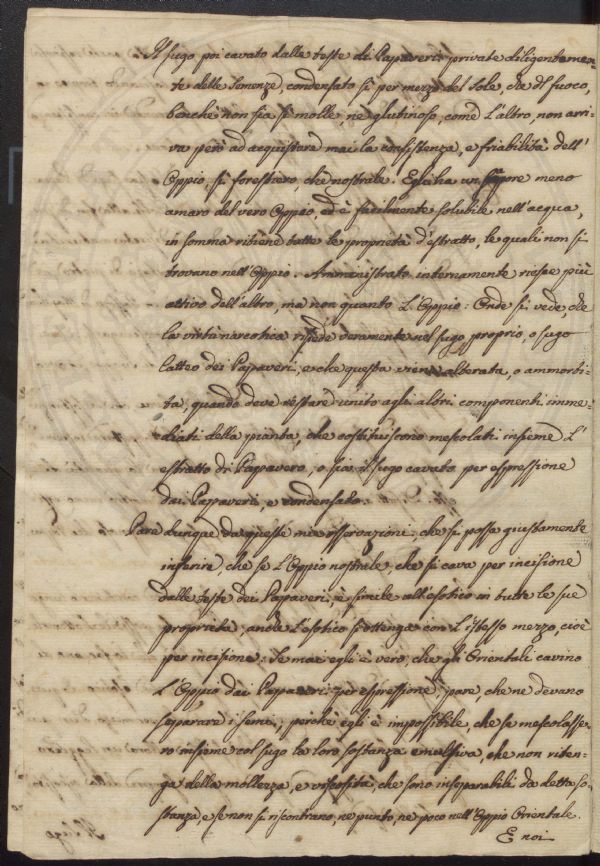 Il sugo poi cavato dalle teste di Papaveri private diligentemen-
te delle Semenze, condensato sì per mezzo del Sole, che del fuoco,
benchè non sia sì molle, nè glutinoso, come l'altro, non arri-
va però ad acquistare mai la consistenza, e friabilità dell'
Oppio, sì forestiero, che nostrale. Egli ha un sapore meno
amaro del vero Oppio, ed è facilmente solubile nell'acqua,
in somma ritiene tutte le proprietà d'estratto, le quali non si
trovano nell'Oppio. Amministrato internamente riesce più
attivo dell'altro, ma non quanto l'Oppio: Onde si vede, che
la virtù narcotica risiede veramente nel sugo proprio, o sugo
latteo dei Papaveri, e che questa viene alterata, o ammorbi-
ta, quando deve restare unito agli altri componenti imme-
diati della pianta, che costituiscono mescolati insieme l'
estratto di Papavero, o sia il sugo cavato per espressione
dai Papaveri, e condensato.
Pare dunque da queste mie osservazioni, che si possa giustamente
inferire, che se l'Oppio nostrale che si cava per incisione
dalle teste dei Papaveri, è simile all'esotico in tutte le sue
proprietà, anche l'esotico si ottenga con l'istesso mezzo, cioè
per incisione: Se mai egli è vero, che gli Orientali cavino
l'Oppio dai Papaveri per espressione, pare, che ne devano
separare i semi, perchè egli è impossibile, che se mescolasse-
ro insieme col sugo la loro sostanza emulsiva, che non riten-
ga della mollezza, e viscosità, che sono inseparabili da detta so-
stanza, e se non si riscontrano, ne punto, ne poco nell'Oppio Orientale.
E noi